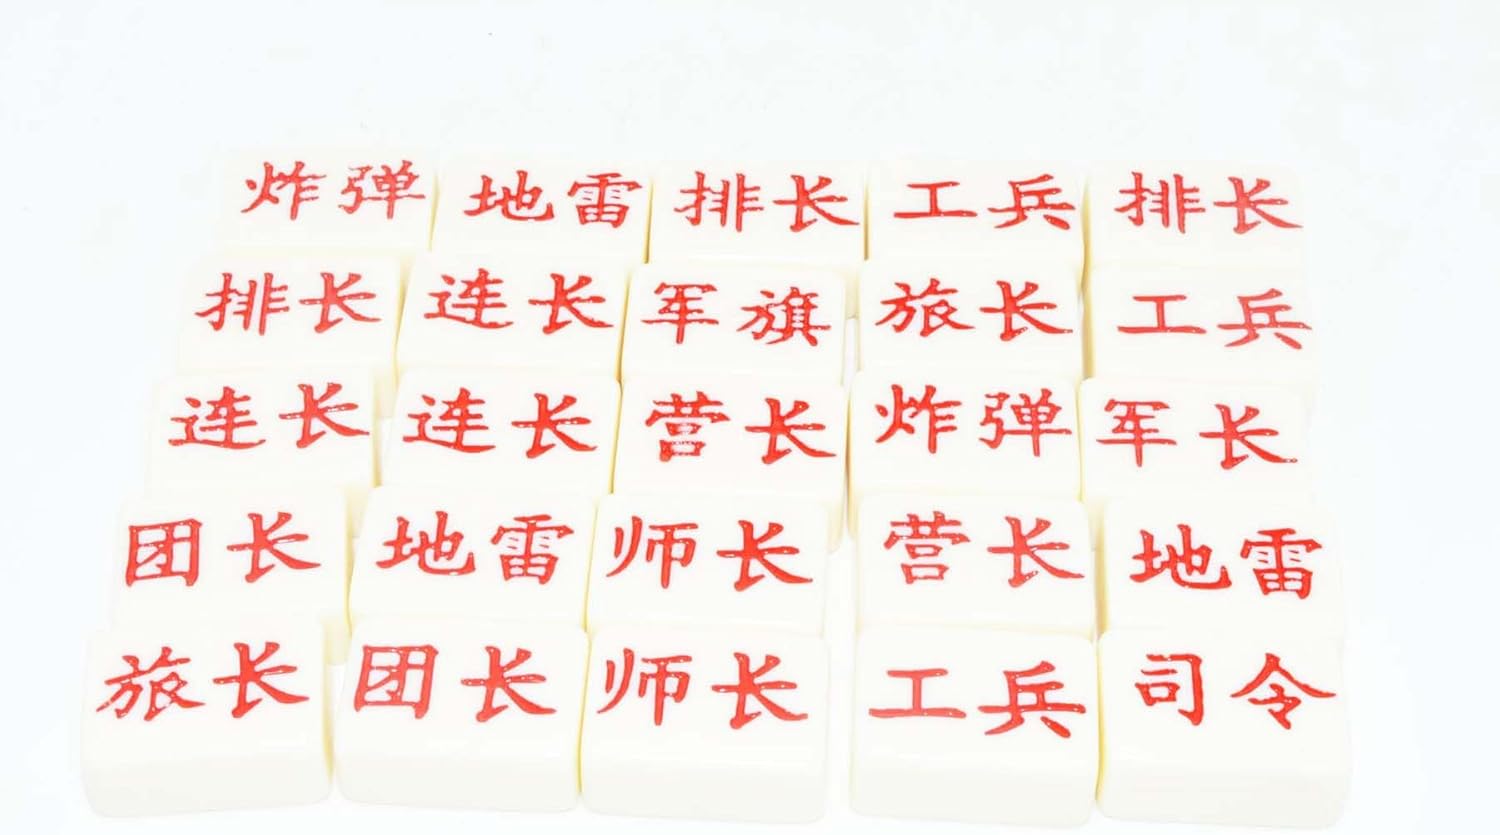 炸弹 地雷 排长 工兵 排长
排长 连长 军旗 旅长 工兵
连长 连长 营长 炸弹 军长
团长 地雷 师长 营长 地雷
旅长 团长 师长 工兵 司令